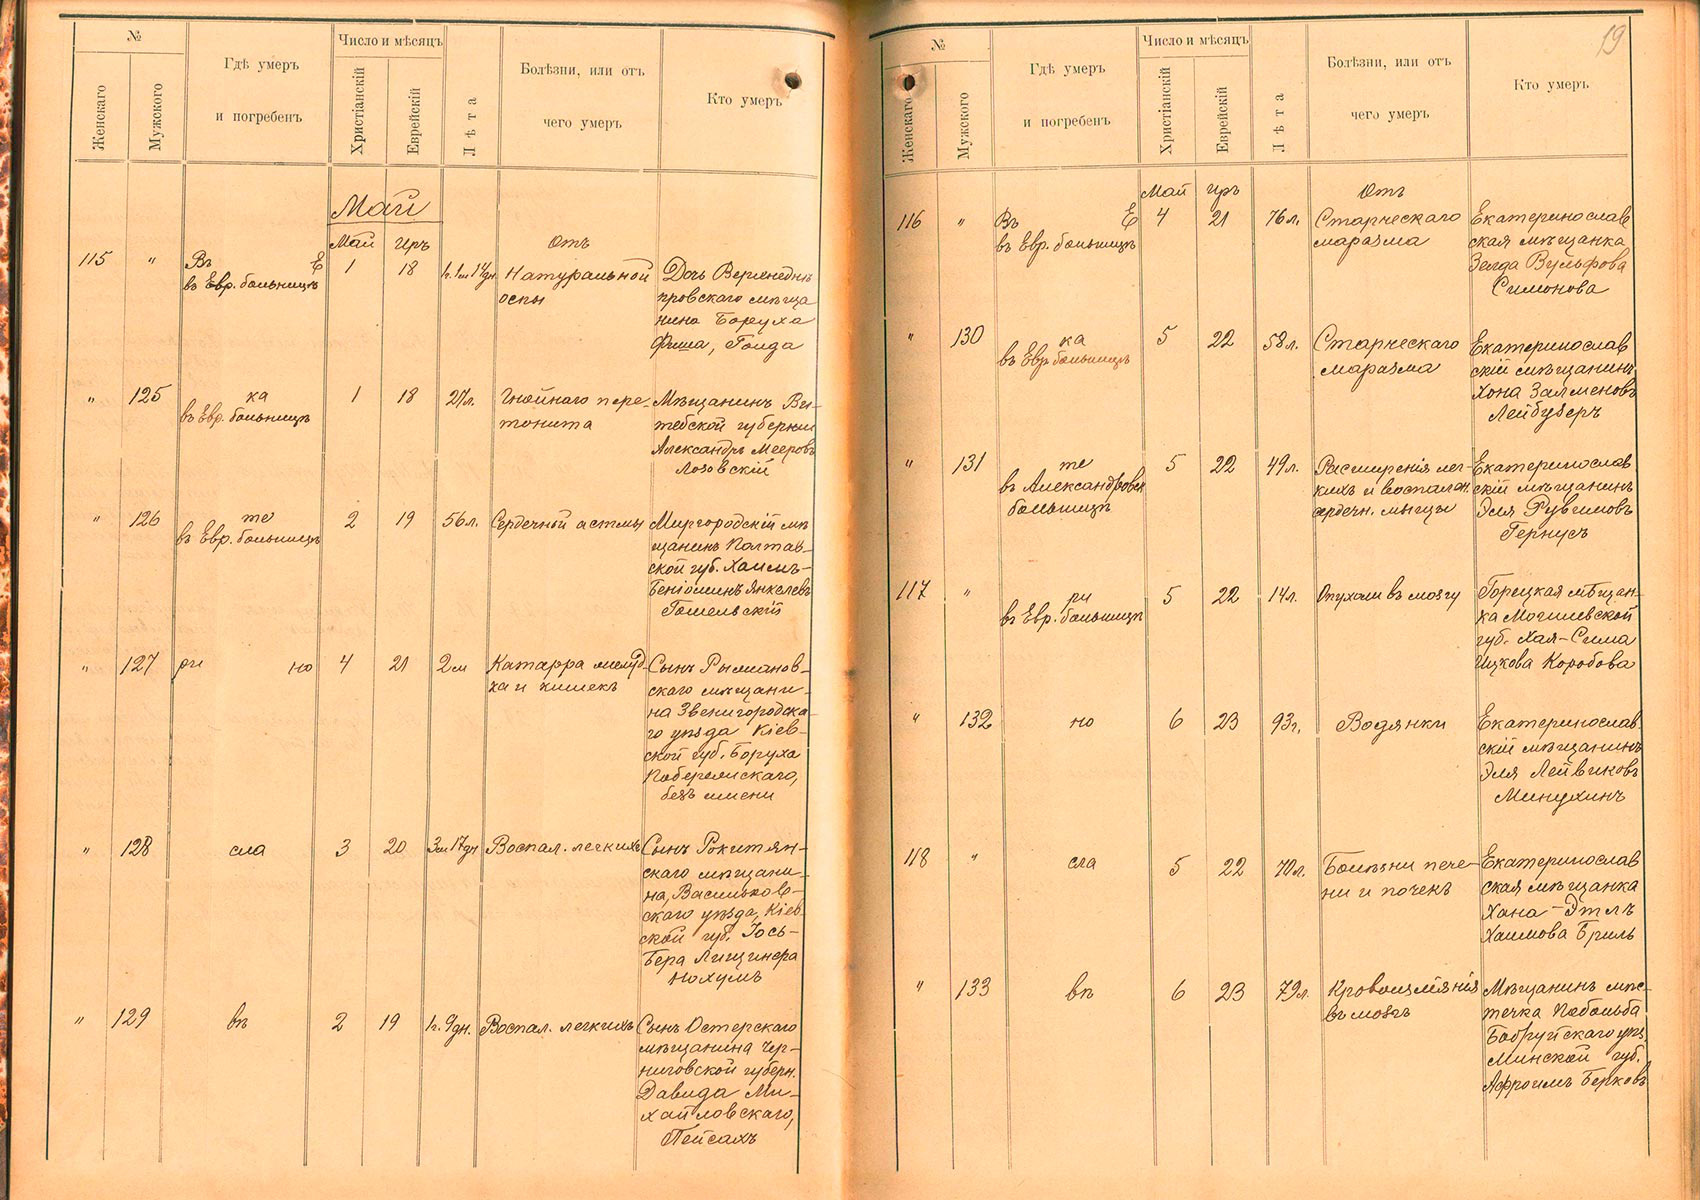 №
Женскаго
Мужского
Гдѣ умеръ
и погребенъ
Число и мѣсяцъ
Христіанскій
Еврейскій
Лѣта
Болѣзни, или отъ
чего умеръ
Кто умеръ
Май
Май Иръ
Отъ
115 " Въ Е
въ Евр. больницѣ
1 18 1г. 1м 14дн
Натуральной
оспы
Дочь Верхнеднѣ
провскаго мѣща
нина Боруха
Фиша, Голда
" 125 ка
въ Евр. больницѣ
1 18 27л.
Гнойнаго пере-
тонита
Мѣщанинъ Ви-
тебской губерніи
Александръ Мееровъ
Лозовскій
" 126 те
въ Евр. больницѣ
2 19 56л.
Сердечной астмы
Миргородскій мѣ
щанинъ Полтав-
ской губ. Хаимъ-
Беніоминъ Янкелевъ
Гомельскій
" 127 ри но
4 21 2м
Катарра желуд-
ка и кишекъ
Сынъ Рыжанов-
скаго мѣщани-
на Звенигородска-
го уѣзда Кіев-
ской губ. Боруха
Побережскаго,
безъ имени
" 128 сла
3 20 3м 17дн
Воспал. легкихъ
Сынъ Рокитян-
скаго мѣщани-
на, Васильков-
скаго уѣзда, Кіев
ской губ. Іось-
Бера Лищинера
Нохумъ
" 129 вѣ
2 19 1г. 9дн.
Воспал. легкихъ
Сынъ Остерскаго
мѣщанина Чер-
ниговской губерн.
Давида Ми-
хайловскаго,
Пейсахъ
19
№
Женскаго
Мужского
Гдѣ умеръ
и погребенъ
Число и мѣсяцъ
Христіанскій
Еврейскій
Лѣта
Болѣзни, или отъ
чего умеръ
Кто умеръ
Май Иръ
Отъ
116 " Въ Е
въ Евр. больницѣ
4 21 76л.
Старческаго
маразма
Екатеринослав
ская мѣщанка
Зелда Вульфова
Симонова
" 130 ка
въ Евр. больницѣ
5 22 58л.
Старческаго
маразма
Екатеринослав
скій мѣщанинъ
Хона Залменовъ
Лейбзеръ
" 131 те
въ Александровск
больницѣ
5 22 49л.
Расширенія лег-
кихъ и воспален.
сердечн. мышцы
Екатеринослав
скій мѣщанинъ
Эля Рувимовъ
Гернусъ
117 " ри
въ Евр. больницѣ
5 22 14л.
Опухоли въ мозгу
Горецкая мѣщан-
ка Могилевской
губ. Хая-Сима
Ицкова Коробова
" 132 но
6 23 93г.
Водянки
Екатеринослав
скій мѣщанинъ
Эля Лейвиковъ
Минухинъ
118 " сла
5 22 70л.
Болѣзни пече-
ни и почекъ
Екатеринослав
ская мѣщанка
Хана-Этль
Хаимова Бриль
" 133 вѣ
6 23 79л.
Кровоизліянія
въ мозгъ
Мѣщанинъ мѣс-
течка
Бобруйскаго уѣз.
Минской губ.
Афроимъ Берковъ